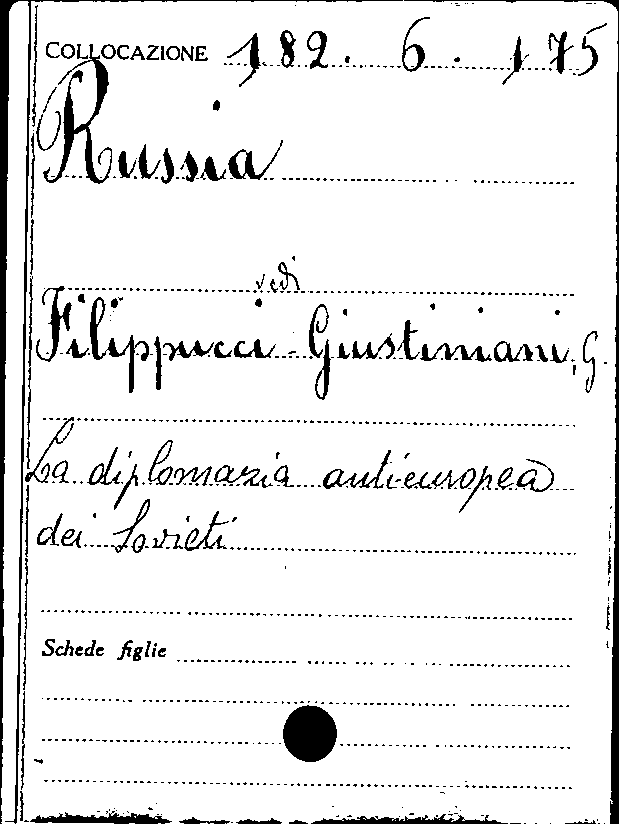 COLLOCAZIONE 182. 6. 175
Russia
vedi
Filippucci-Giustiniani, G.
La diplomazia antieuropea
dei Sovieti
Schede figlie